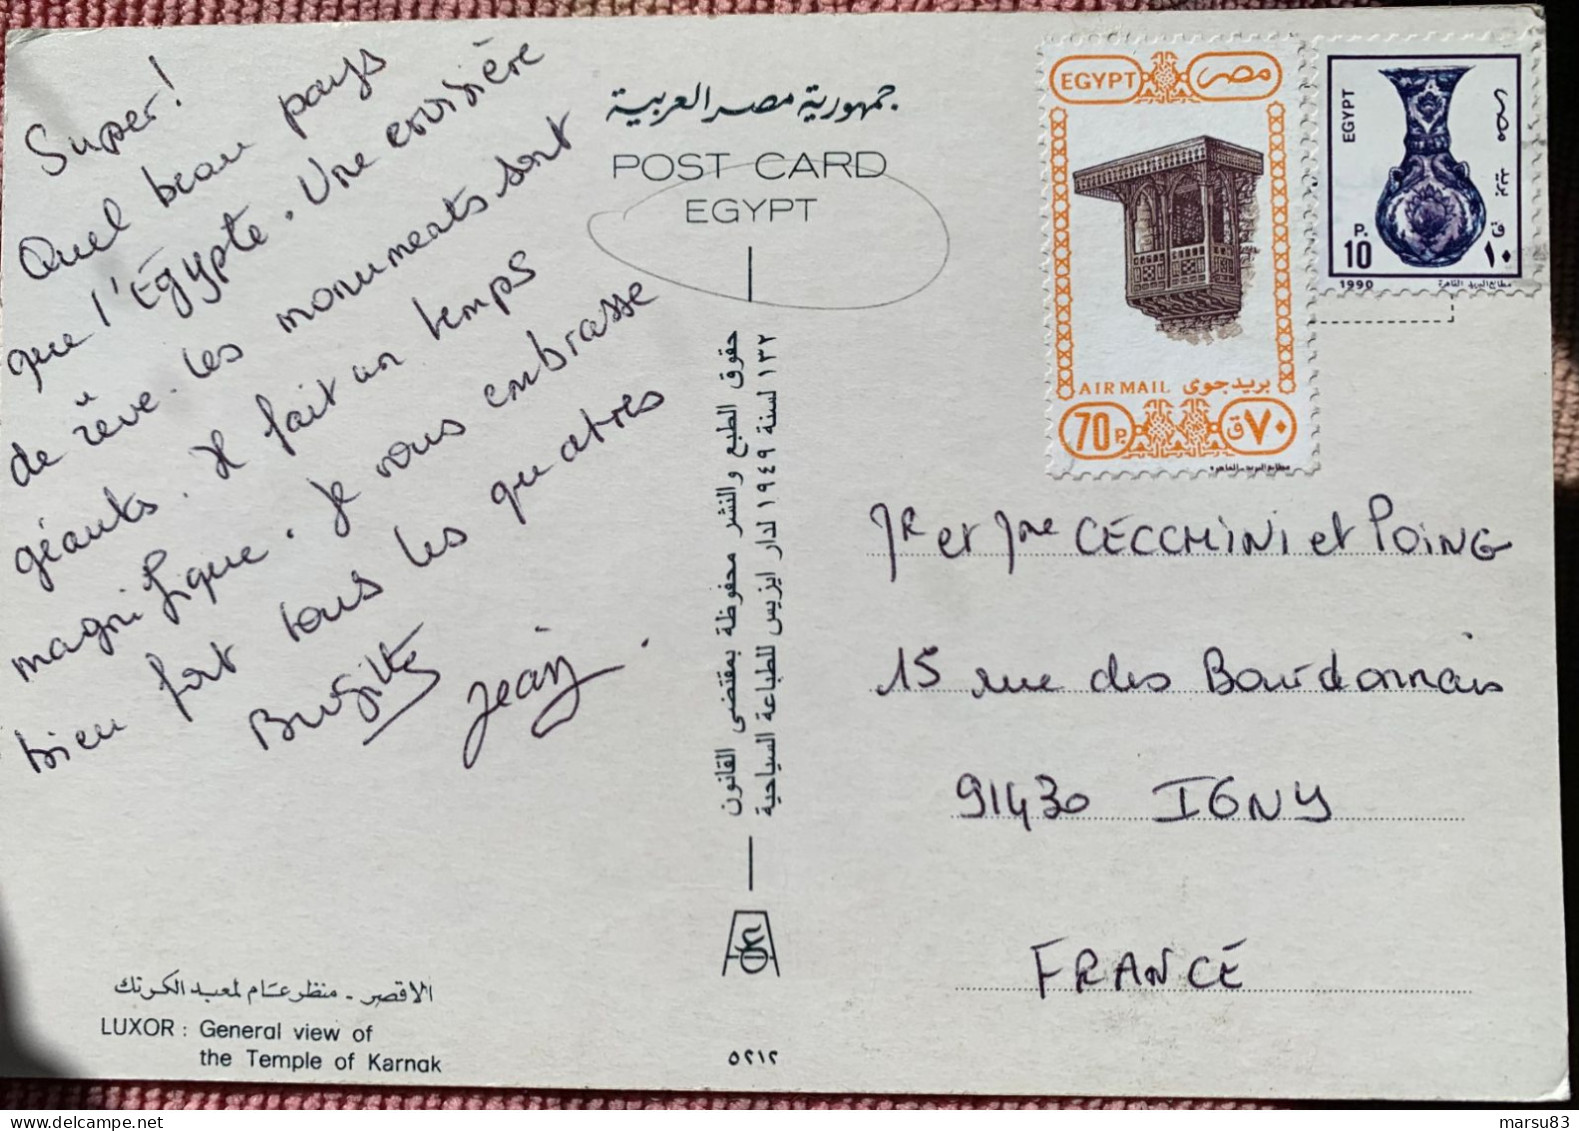 Super!
Quel beau pays
que l'Égypte. Une croisière
de rêve. les monuments sont
géants. Il fait un temps
magnifique. Je vous embrasse
bien fort tous les quatres
Brigitte Jean
جمهورية مصر العربية
POST CARD
EGYPT
حقوق الطبع والنشر محفوظة بمقتضى القانون
١٣٢ لسنة ١٩٤٩ لدار ايزيس للطباعة السياحية
EGYPT مصر
AIR MAIL بريد جوى
70 P. ٧٠ ق
مطابع البريد - القاهرة
EGYPT
مصر بريد
P. 10
١٠ ق
1990 مطابع البريد القاهرة
Mr et Mme CECCHINI et POING
15 rue des Bourdonnais
91430 IGNY
FRANCE
الاقصر - منظر عام لمعبد الكرنك
LUXOR : General view of
the Temple of Karnak
٥٢١٢
marsu83